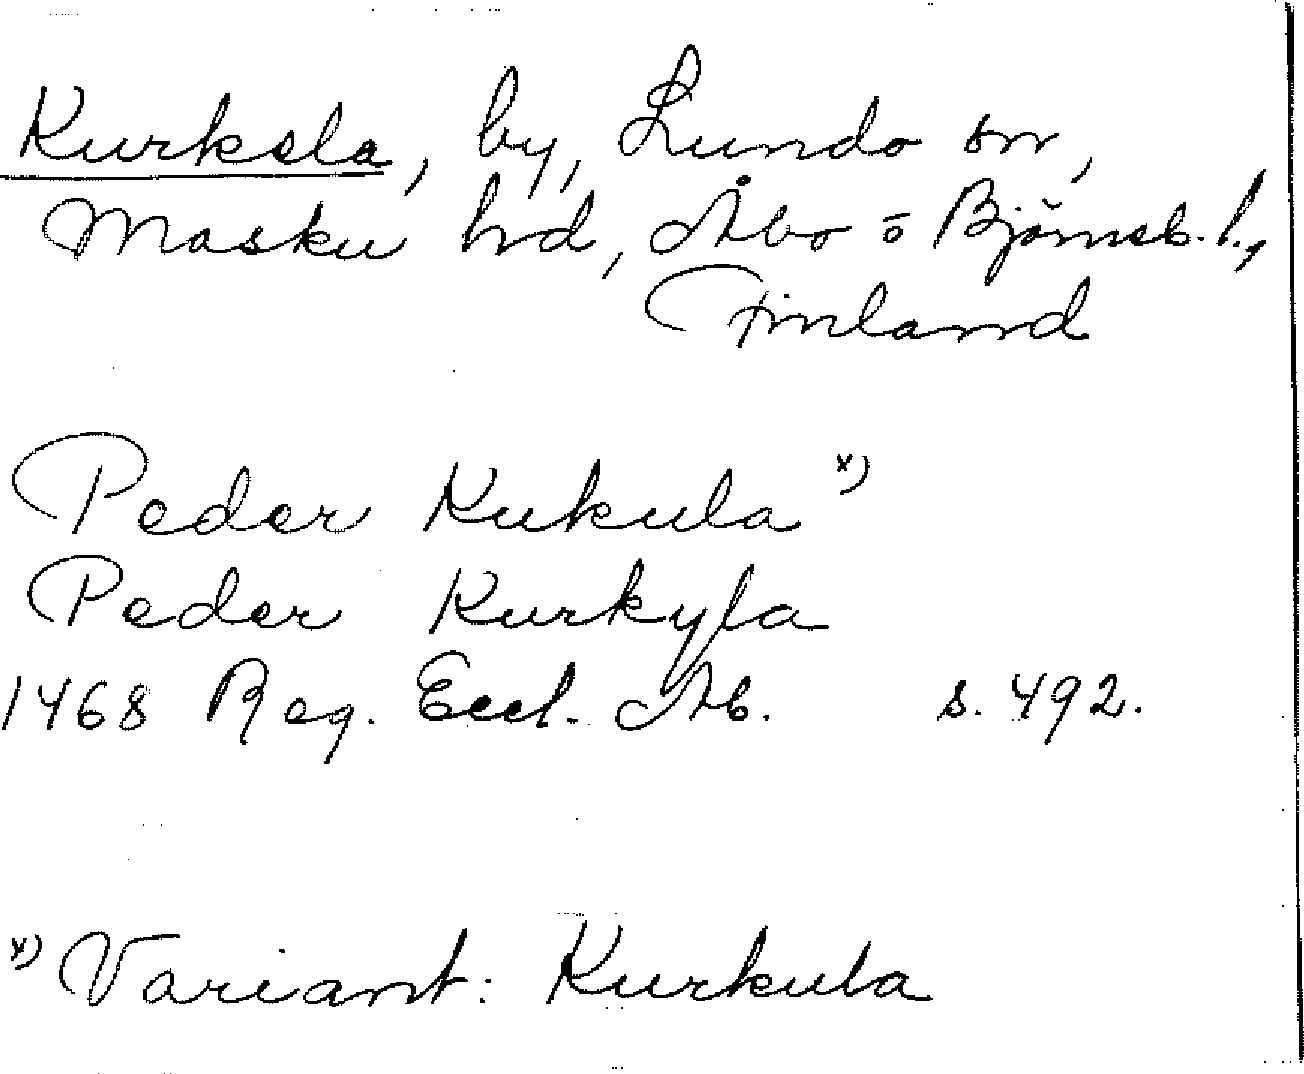 Kurksla, by, Lundo sn,
Masku hrd, Åbo o Björneb. l.,
Finland
Peder Kukula x)
Peder Kurkyla
1468 Reg. Eccl. Ab. s. 492.
x) Variant: Kurkula